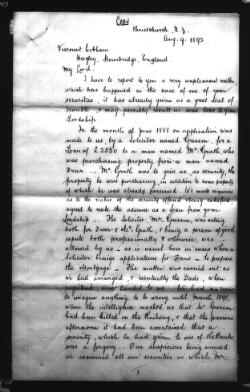 Copy
Christchurch N.Z.
Aug. 9. 1892
Viscount Cobham
Hagley, Stourbridge, England.
My Lord,
I have to report to you a very unpleasant matter
which has happened in the case of one of your
securities, it has already given us a great deal of
trouble & may possibly result in some loss to your
Lordship.
In the month of June 1888 an application was
made to us, by a Solicitor named for a
Loan of £2350 to a man named McGrath who
was purchasing property from a man named
McGrath was to give us, as security, the
property he was purchasing, in addition to some property
of which he was already possessed. We made inquiries
as to the value of the security offered & being satisfied
agreed to make the advance as a loan from your
Lordship. The Solicitor, Mr. was acting
both for & McGrath, & being a person of good
repute both professionally & otherwise, was
allowed by us as is usual here in cases where a
Solicitor brings applications for loans to prepare
the Mortgage. The matter was carried out as
we had arranged, & eventually the Deeds, when
registered, were handed to us. We had no reason
to imagine anything to be wrong until March 1891,
when the intelligence reached us that Mr.
had been killed on the Railway, & that the previous
afternoon it had been ascertained that a
security, which he had given to one of the Banks
was a forgery. Our suspicions being aroused
we examined all our securities in which Mr.
1